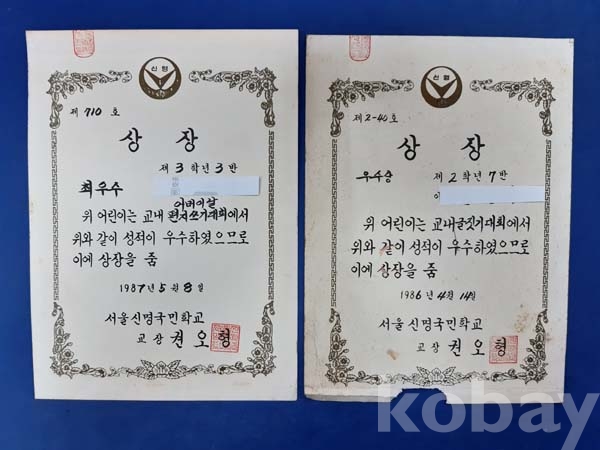 신명
제 710 호
상장
제 3 학년 3 반
최우수
어버이날
위 어린이는 교내 편지쓰기대회에서
위와 같이 성적이 우수하였으므로
이에 상장을 줌
1987 년 5 월 8 일
서울신명국민학교
교장 권오형
신명
제 2-40 호
상장
우수상 제 2 학년 7 반
위 어린이는 교내글짓기대회에서
위와 같이 성적이 우수하였으므로
이에 상장을 줌
1986 년 4 월 14 일
서울신명국민학교
교장 권오형
kobay